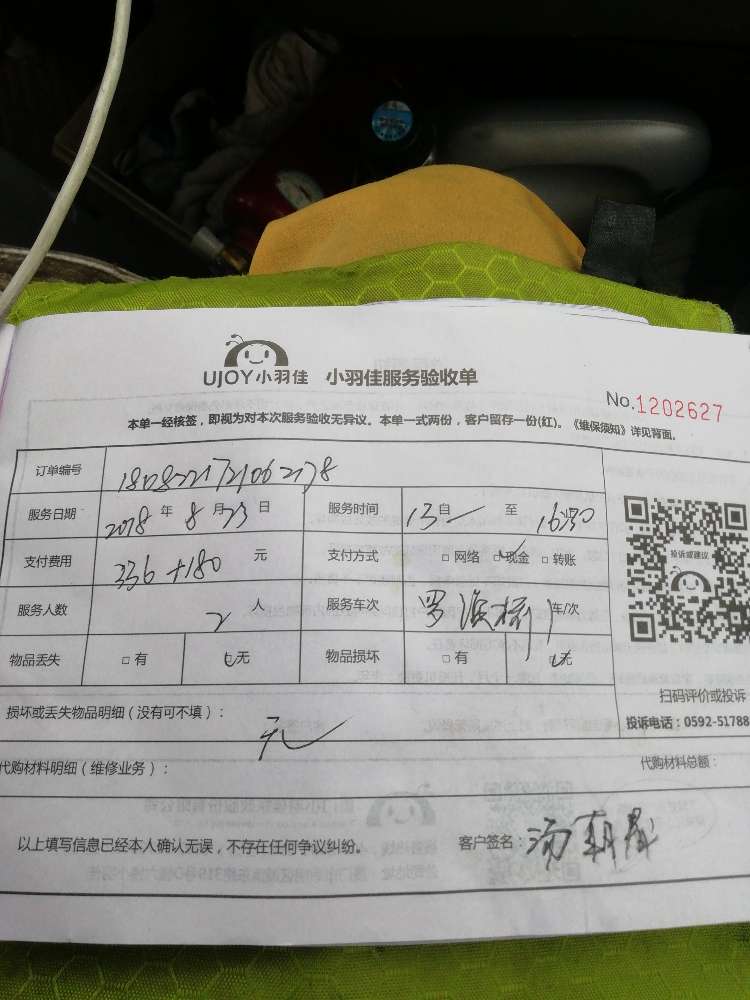 UJOY小羽佳 小羽佳服务验收单
No.1202627
本单一经核签，即视为对本次服务验收无异议。本单一式两份，客户留存一份(红)。《维保须知》详见背面。
订单编号 1808221721062178
服务日期 2018年8月23日 服务时间 13自 至 16:30
支付费用 336+180 元 支付方式 □网络 ☑现金 □转账
投诉或建议
服务人数 2 人 服务车次 1车/次
物品丢失 □有 ☑无 物品损坏 □有 ☑无
扫码评价或投诉
损坏或丢失物品明细（没有可不填）： 无
投诉电话：0592-51788
代购材料明细（维修业务）： 代购材料总额：
以上填写信息已经本人确认无误，不存在任何争议纠纷。 客户签名：汤朝